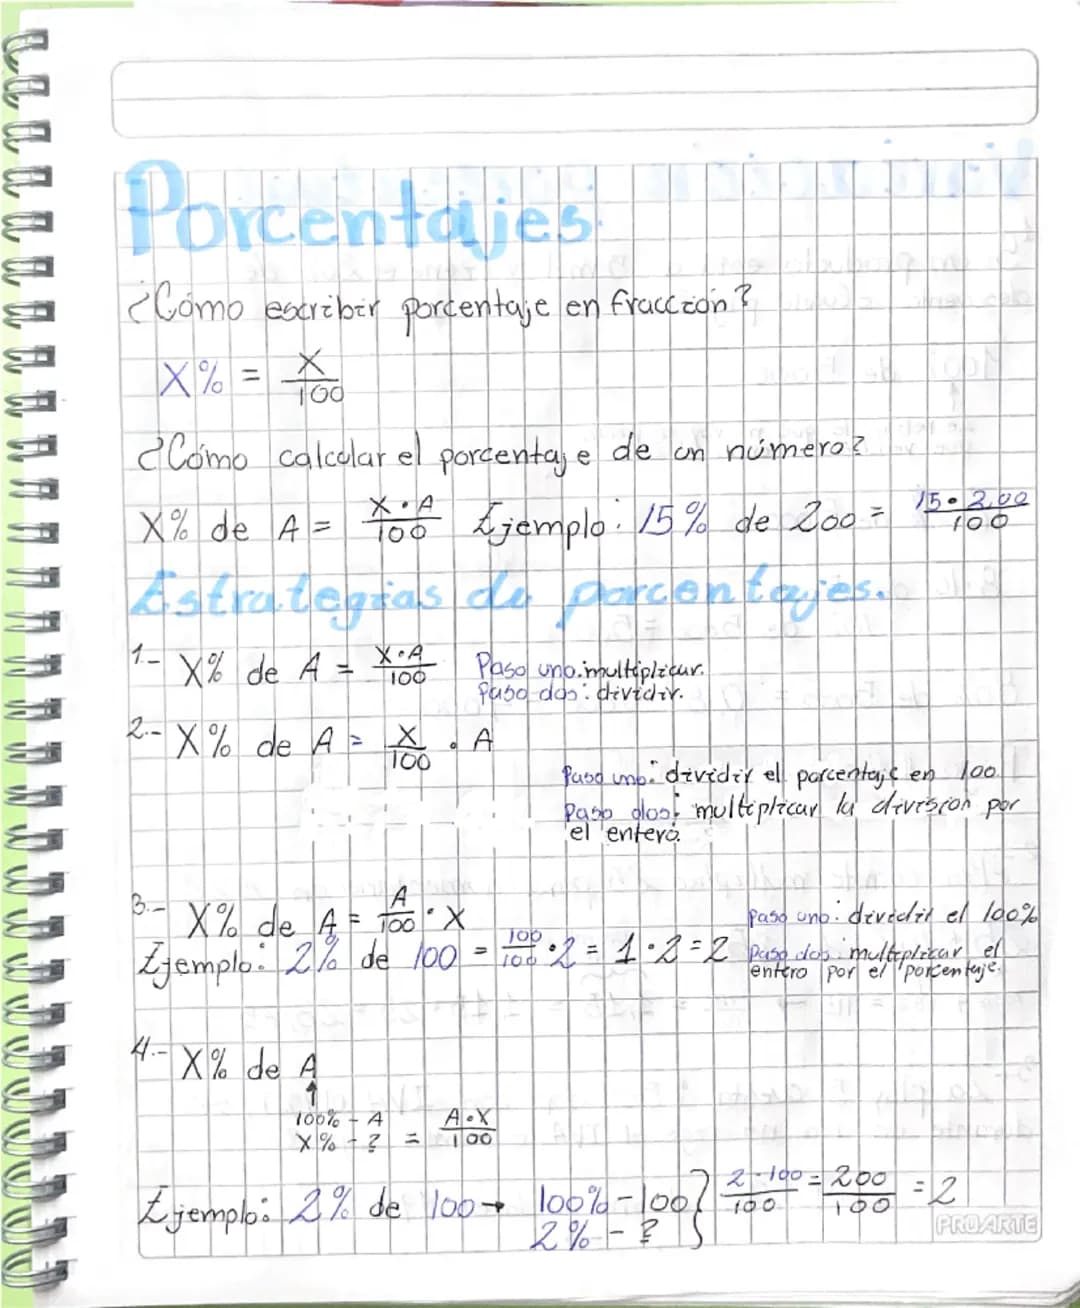 Porcentajes.
¿Cómo escribir porcentaje en fracción?
X% = X/100
¿Cómo calcular el porcentaje de un número?
X% de A = X·A/100 Ejemplo: 15% de 200 = 15·200/100
Estrategias de porcentajes.
1.- X% de A = X·A/100 Paso uno: multiplicar.
Paso dos: dividir.
2.- X% de A = X/100 · A
Paso uno: dividir el porcentaje en 100
Paso dos: multiplicar la división por
el entero.
3.- X% de A = A/100 · X Paso uno: dividir el 100%
Ejemplo: 2% de 100 = 100/100 · 2 = 1·2=2 Paso dos: multiplicar el
entero por el porcentaje.
4.- X% de A
↑
100% - A
X% - ? = A·X/100
Ejemplo: 2% de 100 → 100% - 100 } 2·100/100 = 200/100 = 2
2% - ?
PROARTE